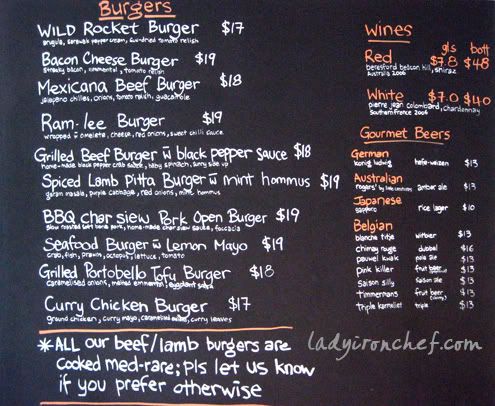 Burgers
WILD Rocket Burger $17
arugula, sarawak pepper cream, sun-dried tomato relish
Bacon Cheese Burger $19
streaky bacon, emmental, tomato relish
Mexicana Beef Burger $18
jalapeno chilies, onions, tomato relish, guacamole
Ram-lee Burger $19
wrapped w omelete, cheese, red onions, sweet chilli sauce
Grilled Beef Burger w black pepper sauce $18
home-made black pepper crab sauce, spinach, sunny side up
Spiced Lamb Pitta Burger w mint hommus $19
garam masala, purple cabbage, red onions, mint hommus
BBQ char siew Pork Open Burger $19
slow roasted soft bone pork, home-made char siew sauce, foccacia
Seafood Burger w Lemon Mayo $19
crab, fish, prawn, octopus, lettuce, tomato
Grilled Portobello Tofu Burger $18
caramelised onions, melted emmental, eggplant salsa
Curry Chicken Burger $17
ground chicken, curry mayo, caramelised onions, curry leaves
*ALL our beef/lamb burgers are
cooked med-rare; pls let us know
if you prefer otherwise
Wines
gls bott
Red $7.8 $48
beresford beacon hill, shiraz
Australia 2006
White $7.0 $40
pierre jean colombard, chardonnay
Southern france 2006
Gourmet Beers
German
konig ludwig hefe-weizen $13
Australian
rogers' by little creatures amber ale $13
Japanese
sapporo rice lager $10
Belgian
blanche titje witbier $13
chimay rouge dubbel $16
pauwel kwak pale ale $13
pink killer fruit beer $13
Saison silly Saison ale $13
Timmermans fruit beer $13
Triple karmeliet triple $13
ladyironchef.com